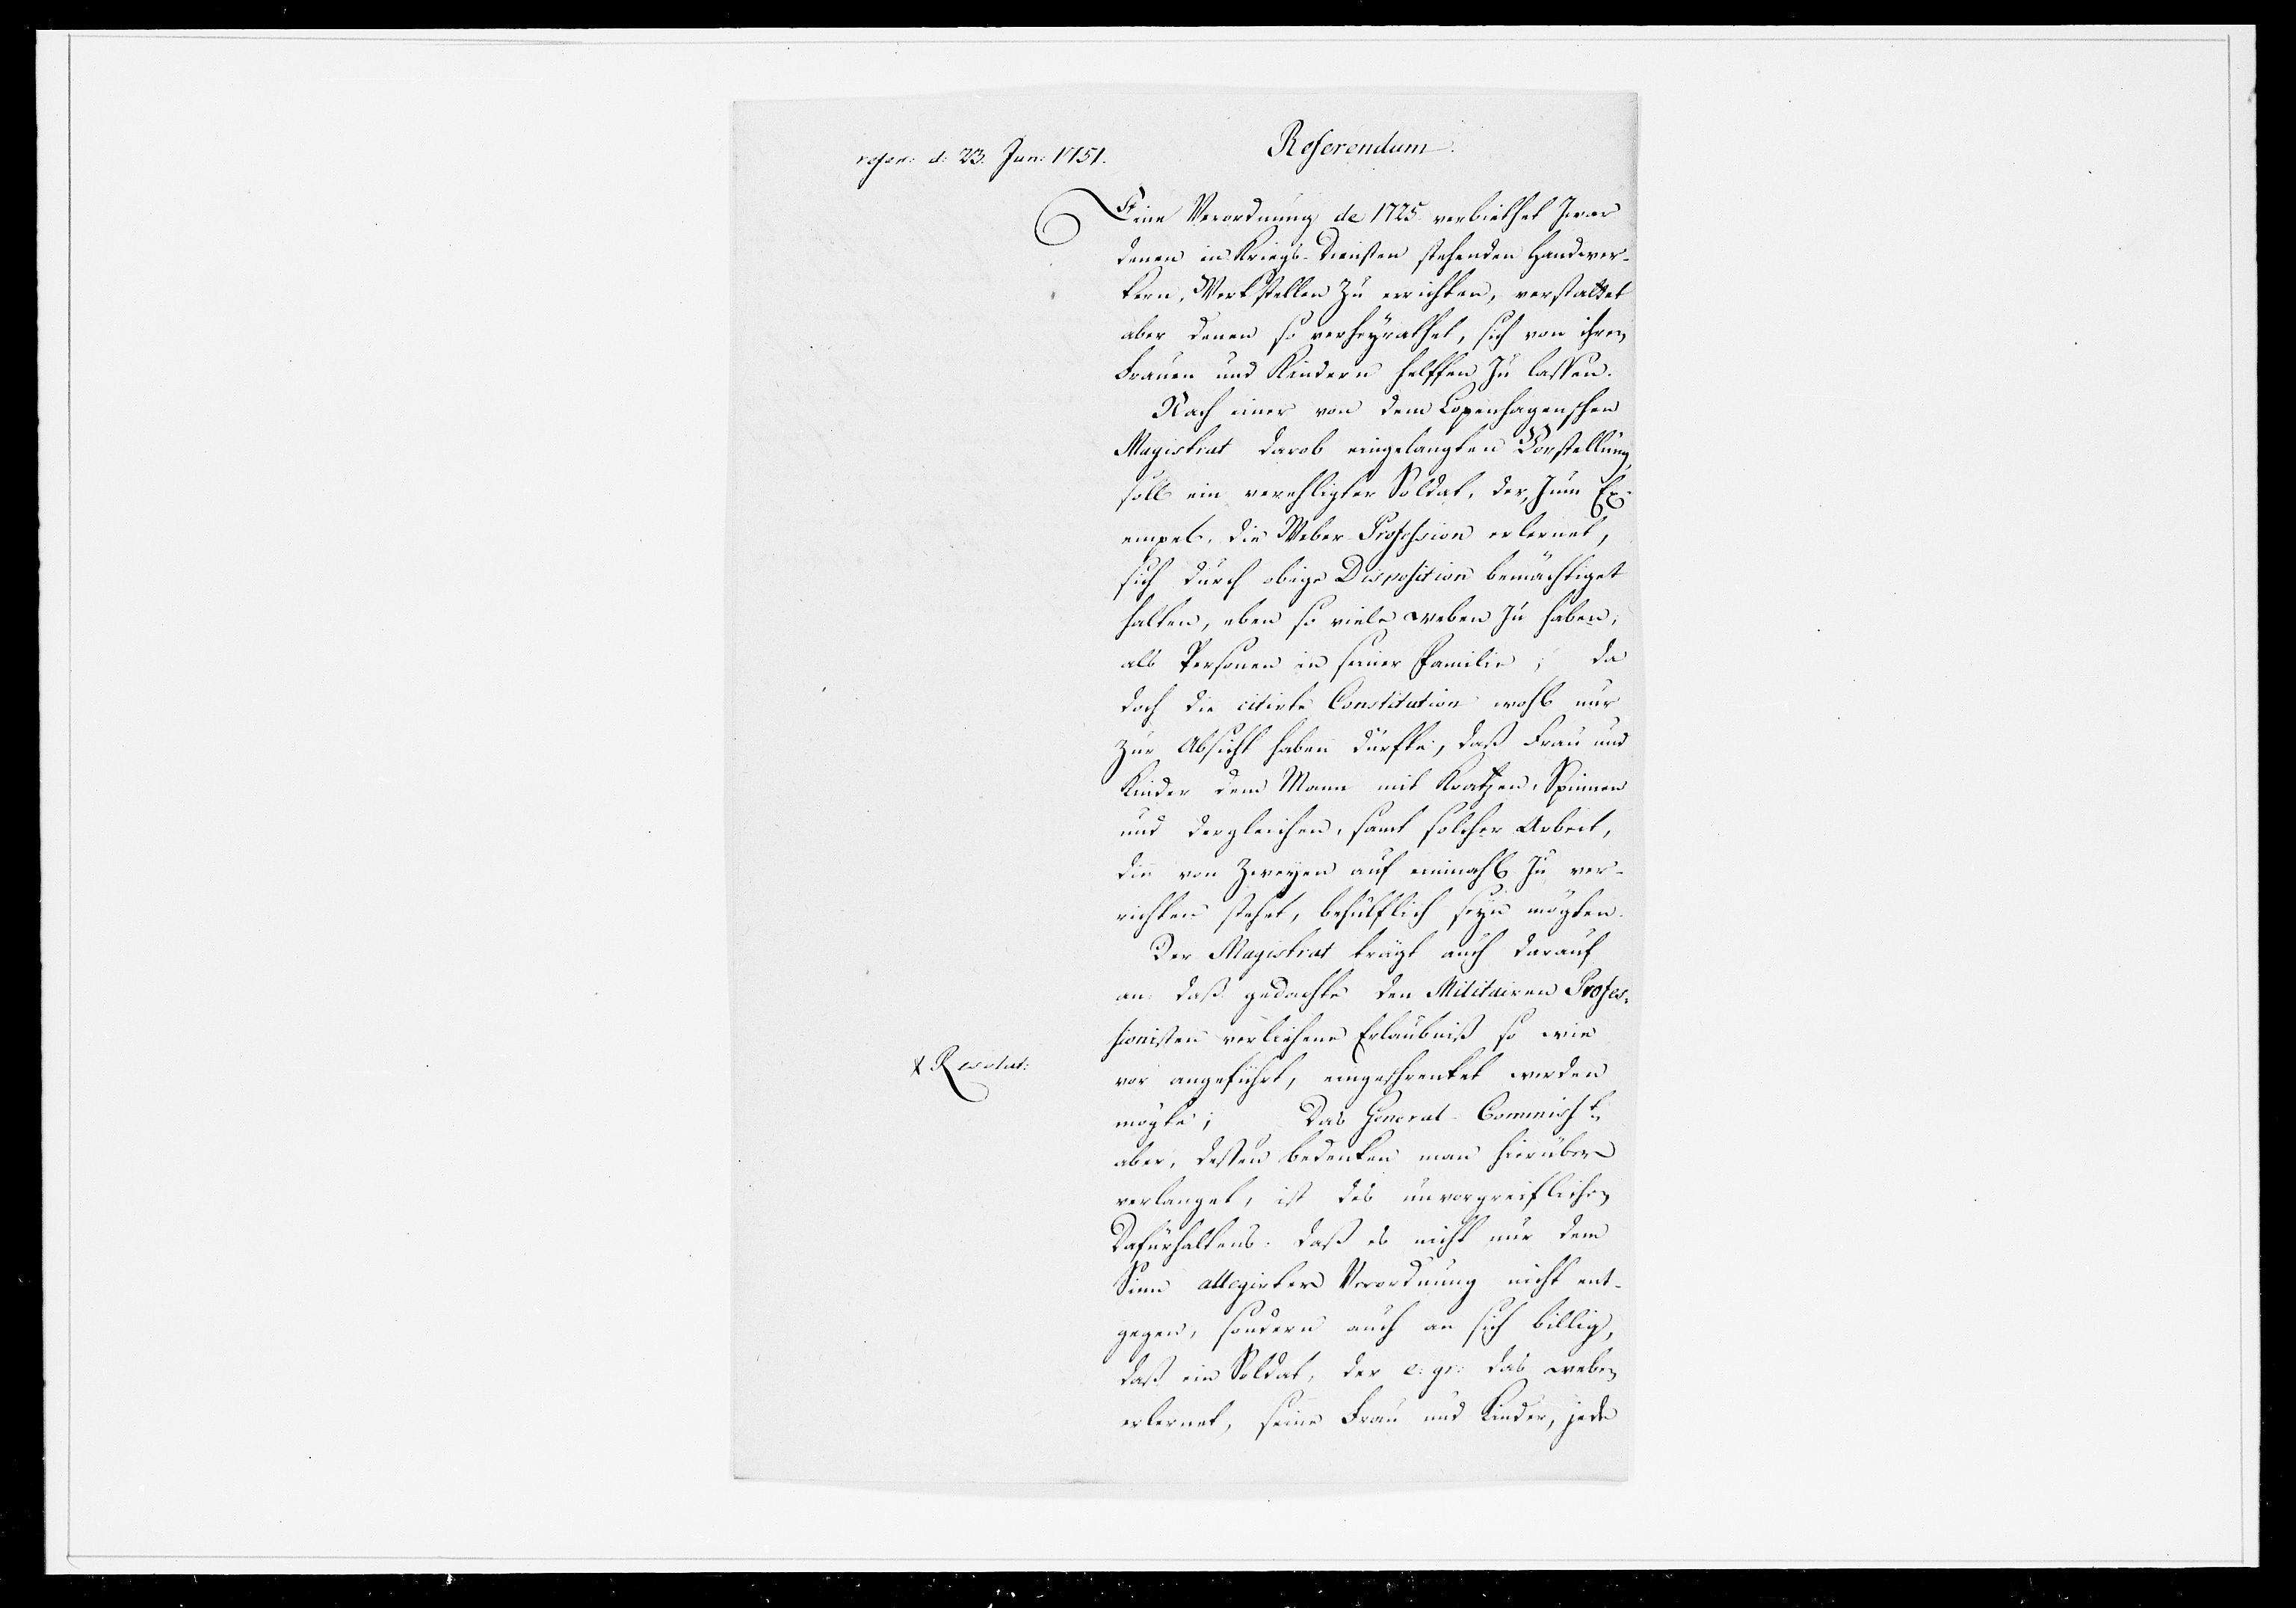 Referendum.
refer: d: 23. Jun: 1751.
Eine Verordnung de 1725 verbiethet zwar
denen in Kriegs-Diensten stehenden Handwer-
kern, Werkstellen zu errichten, verstattet
aber denen so verheyrathet, sich von ihren
Frauen und Kindern helffen zu lassen.
Nach einer von dem Copenhagenschen
Magistrat darob eingelangten Vorstellung
soll ein verehligter Soldat, der, zum Ex-
empel, die Weber-Profession erlernet,
sich durch obige Disposition bemächtiget
halten, eben so viele weben zu haben,
als Personen in seiner Familie; da
doch die citirte Constitution wohl nur
zur Absicht haben dürfte, daß Frau und
Kinder dem Mann mit Kratzen, Spinnen
und dergleichen, samt solcher Arbeit,
die von zweyen auf einmahl zu ver-
richten stehet, behülflich seyn mögten.
Der Magistrat trägt auch darauf
an, daß gedachte den Militairen Profes-
sionisten verliehene Erlaubniß so wie
vor angeführt, eingeschrenket werden
X Resolut:
mögte; Das General-Commiss:t
aber, dessen bedenken man hierüber
verlanget, ist des unvorgreiflichen
Dafürhaltens, daß es nicht nur dem
Sinn allegirter Verordnung nicht ent-
gegen, sondern auch an sich billig,
daß ein Soldat, der e: gr: das weben
erlernet, seine Frau und Kinder, jede